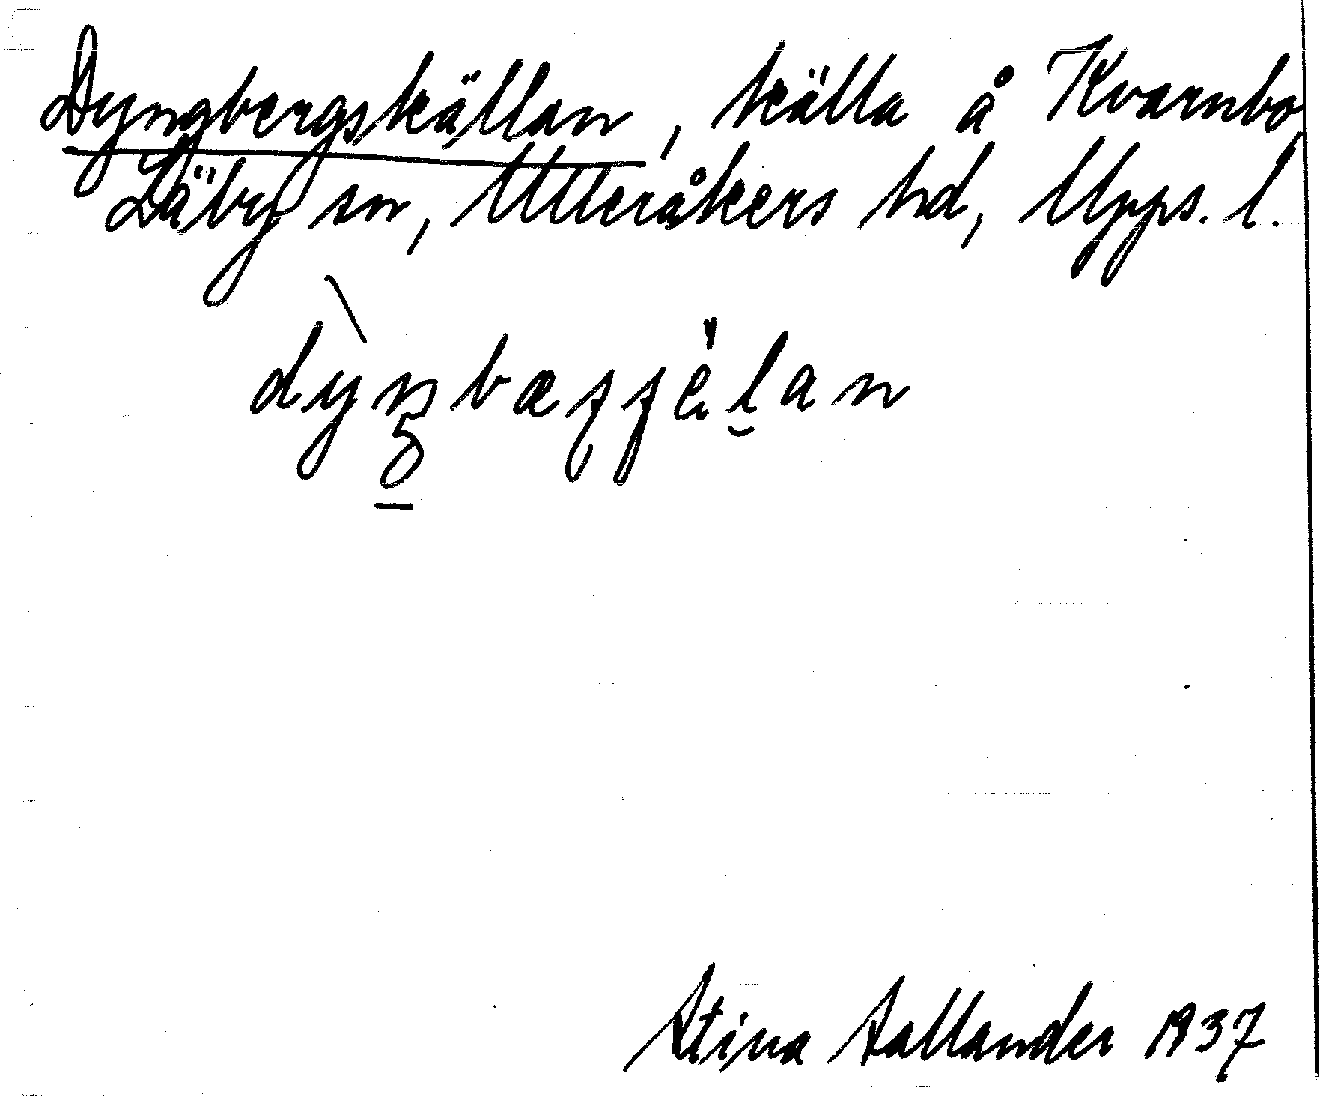 Dyngbergskällan, källa å Kvarnbo,
Läby sn, Ulleråkers hd, Upps. l.
Stina Sallander 1937